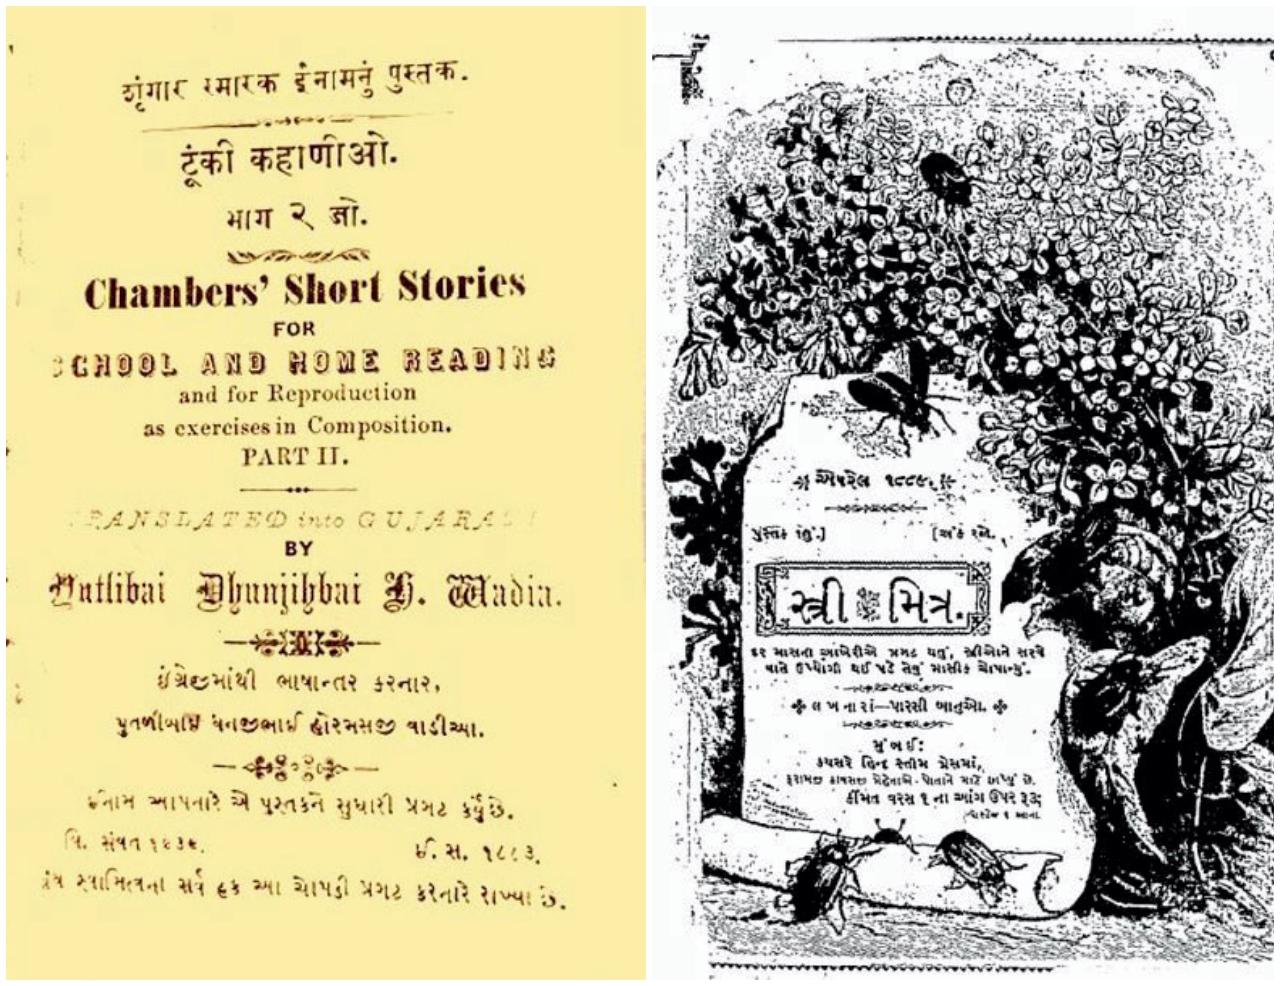 शृंगार स्मारक इंनामनुं पुस्तक.
टूंकी कहाणीओ.
भाग २ जो.
Chambers' Short Stories
FOR
SCHOOL AND HOME READING
and for Reproduction
as exercises in Composition.
PART II.
TRANSLATED into GUJARATI
BY
Putlibai Dhunjibhai H. Wadia.
ઇંગ્રેજીમાંથી ભાષાન્તર કરનાર,
પુતળીબાઈ ધનજીભાઈ હોરમસજી વાડીઆ.
ઈનામ આપનારે એ પુસ્તકને સુધારી પ્રગટ કર્યું છે.
વિ. સંવત ૧૯૩૯.
ઈ. સ. ૧૮૮૩.
સ્વામિત્વના સર્વ હક આ ચોપડી પ્રગટ કરનારે રાખ્યા છે.
એપરેલ ૧૮૮૯.
પુસ્તક
[અંક
સ્ત્રી મિત્ર.
દર માસના આખેરીએ પ્રગટ થતું, સ્ત્રીઓને સરવે
વાતે ઉપયોગી થઈ પડે તેવું માસીક ચોપાન્યું.
લખનારાં—પારસી બાનુઓ.
મુંબઈ:
કયસરે હિન્દ સ્તીમ પ્રેસમાં,
ફરામજી કાવસજી મેહેતાએ પોતાને માટે છાપ્યું છે.
કીંમત વરસ ૧ ના આગ ઉપર રૂ